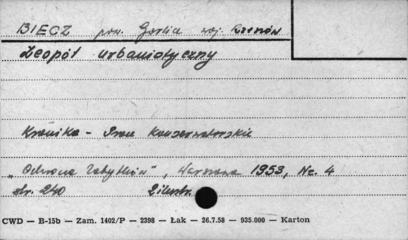 BIECZ pow. Gorlice woj. Rzeszów
Zespół urbanistyczny
Kronika - Prace konserwatorskie
"Ochrona Zabytków", Warszawa 1953, Nr. 4
str. 240 2 ilustr.
CWD — B-15b — Zam. 1402/P — 2398 — Łak — 26.7.58 — 935.000 — Karton